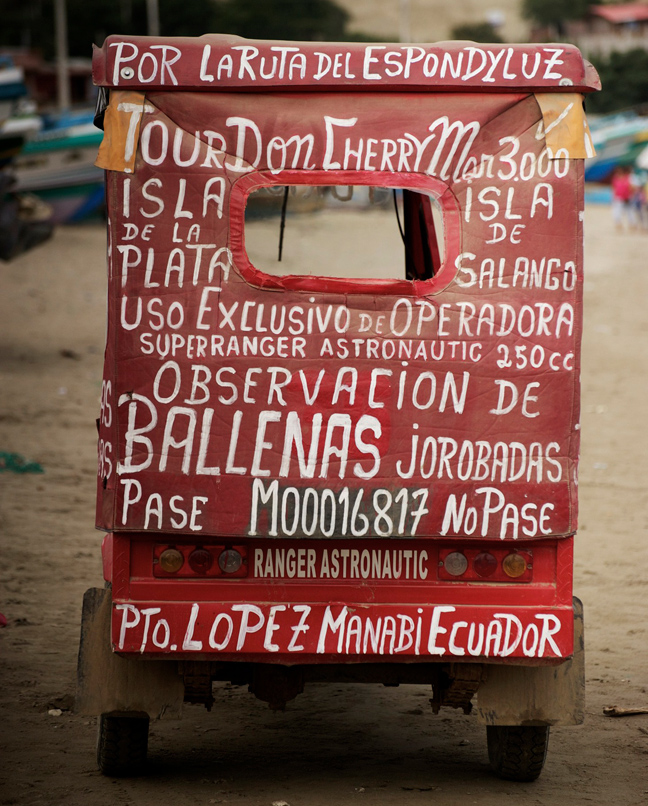 POR LA RUTA DEL ESPONDYLUZ
TOUR DON CHERRY Mar 3.000
ISLA DE LA PLATA
ISLA DE SALANGO
USO EXCLUSIVO DE OPERADORA
SUPERRANGER ASTRONAUTIC 250cc
OBSERVACION DE
BALLENAS JOROBADAS
PASE M00016817 NO PASE
RANGER ASTRONAUTIC
PTO. LOPEZ MANABI ECUADOR